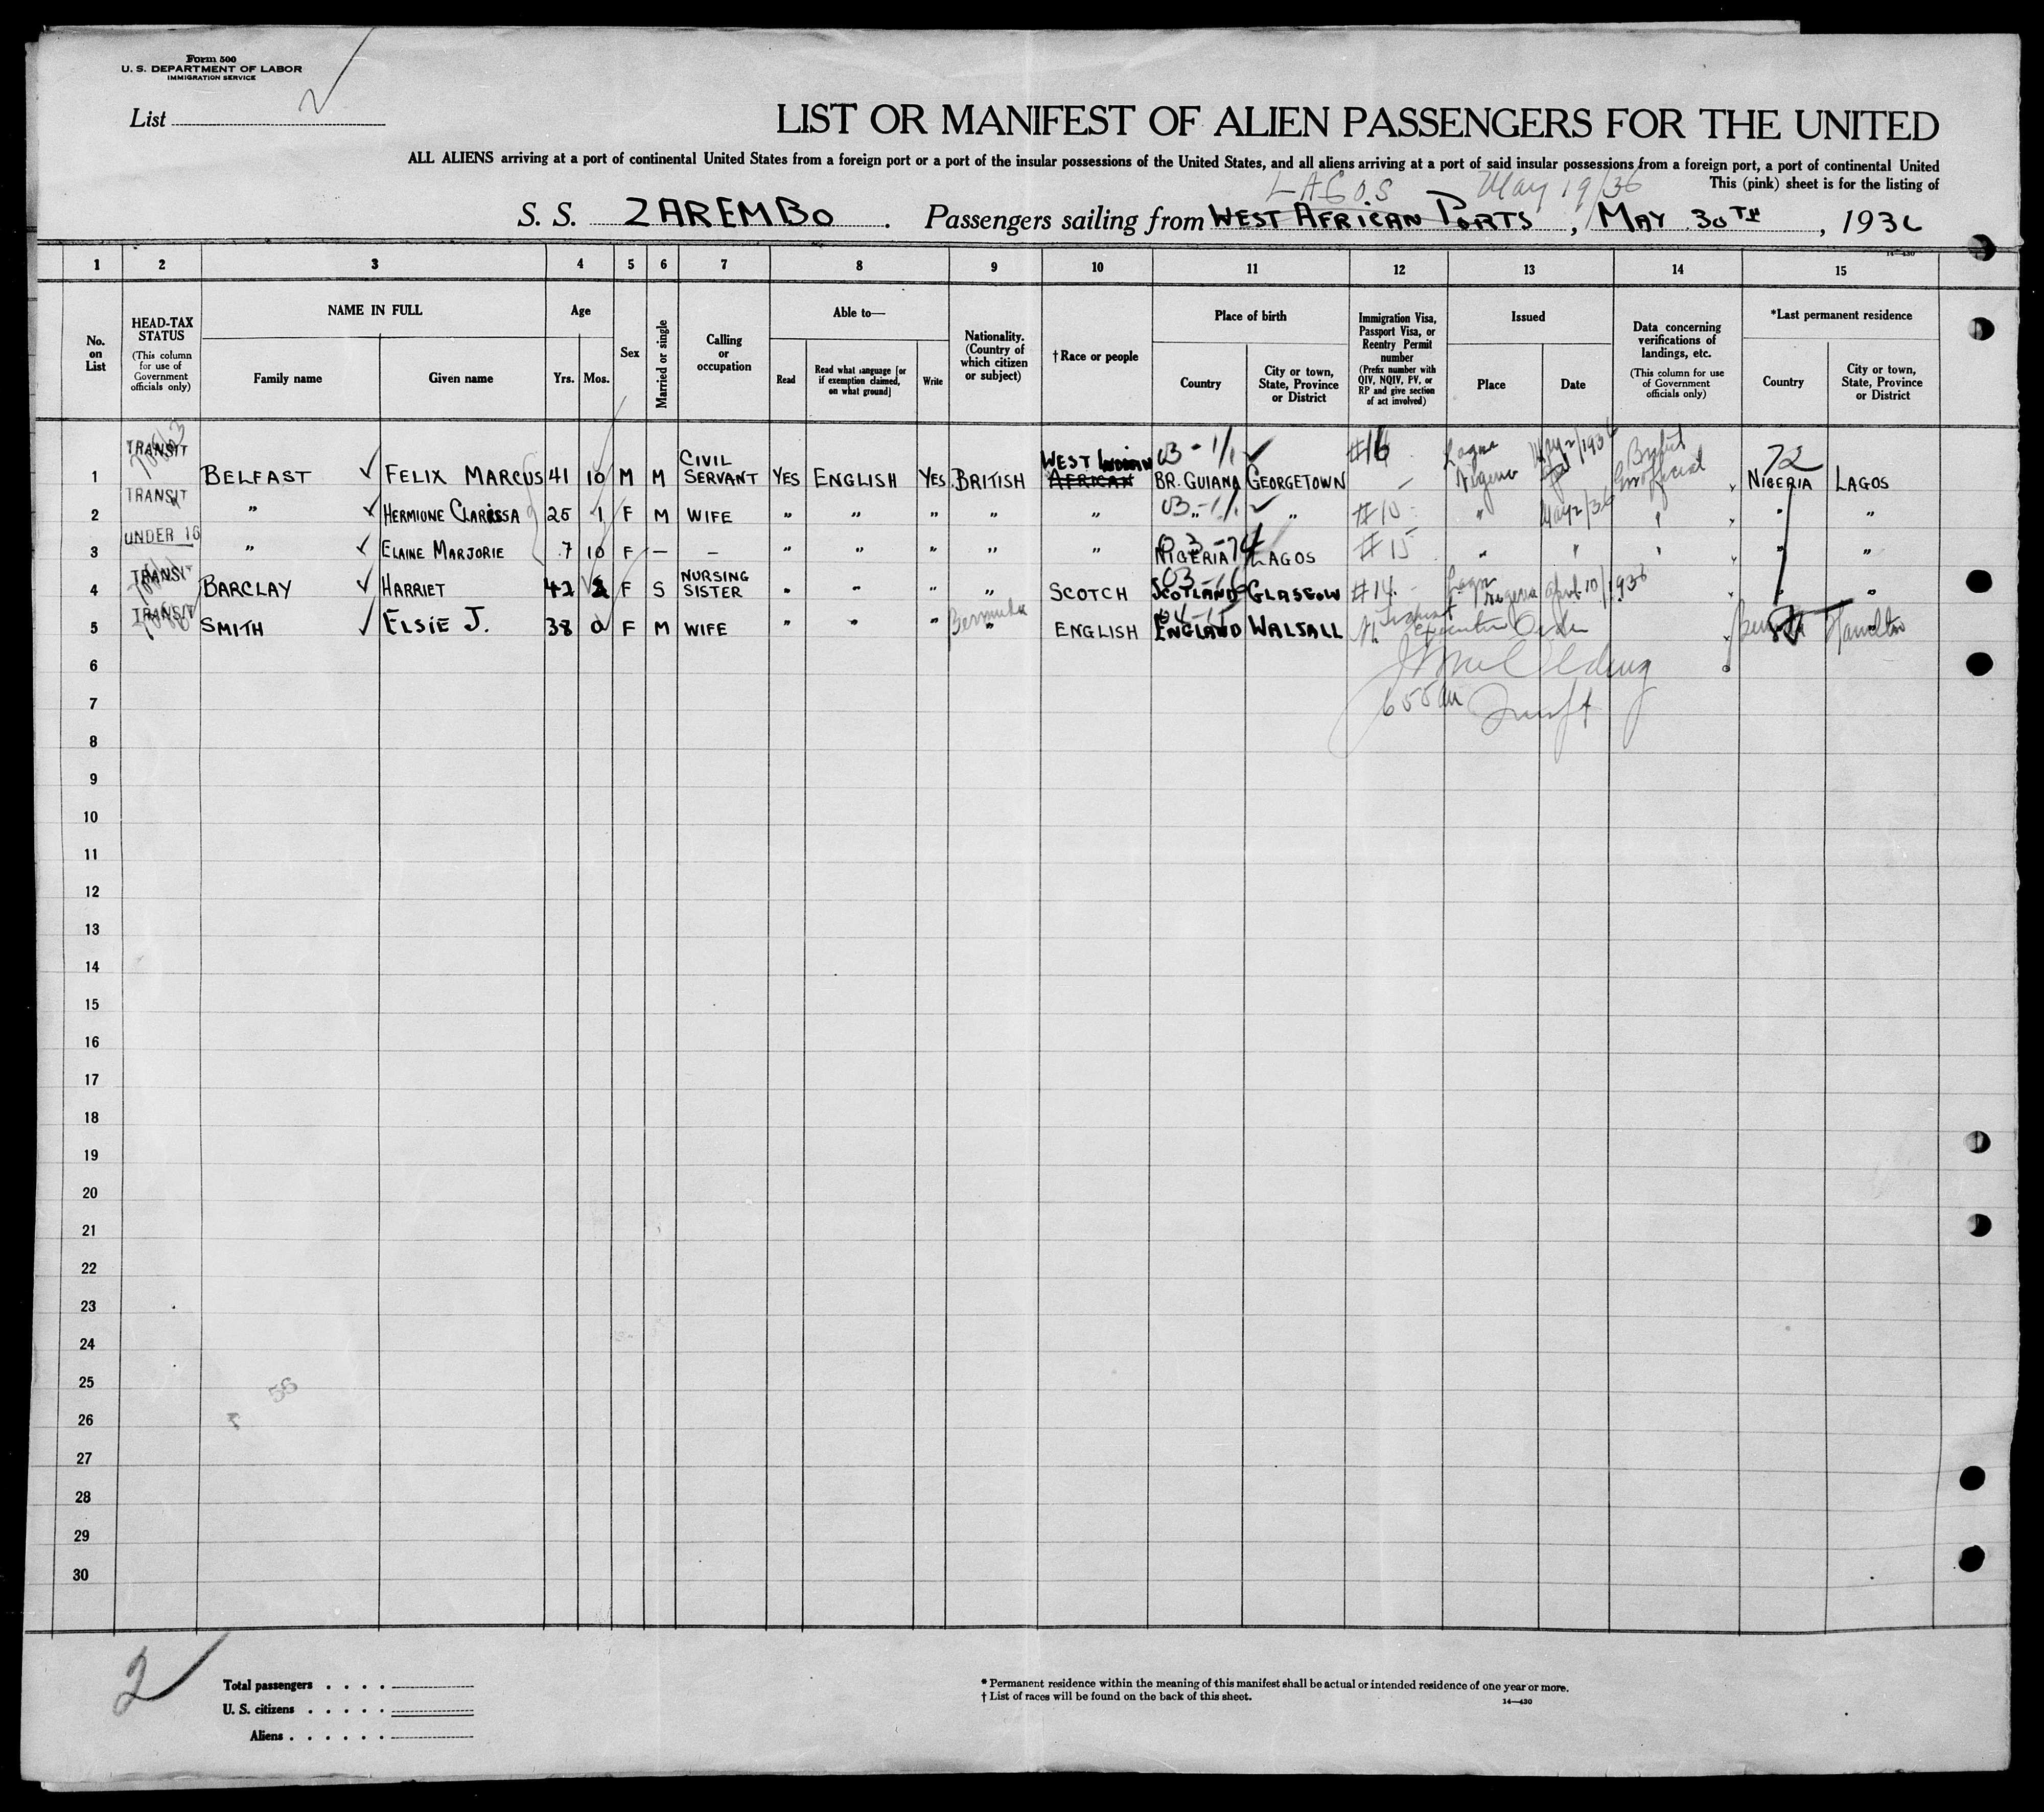 Form 500
U. S. DEPARTMENT OF LABOR
IMMIGRATION SERVICE
List
LIST OR MANIFEST OF ALIEN PASSENGERS FOR THE UNITED
ALL ALIENS arriving at a port of continental United States from a foreign port or a port of the insular possessions of the United States, and all aliens arriving at a port of said insular possessions from a foreign port, a port of continental United
This (pink) sheet is for the listing of
LAGOS May 19/36
S. S. ZAREMBO. Passengers sailing from WEST AFRICAN PORTS, MAY 30TH, 1936
14—430
1 2 3 4 5 6 7 8 9 10 11 12 13 14 15
No. on List
HEAD-TAX STATUS (This column for use of Government officials only)
NAME IN FULL
Family name
Given name
Age
Yrs. Mos.
Sex
Married or single
Calling or occupation
Able to—
Read
Read what language [or if exemption claimed, on what ground]
Write
Nationality. (Country of which citizen or subject)
†Race or people
Place of birth
Country
City or town, State, Province or District
Immigration Visa, Passport Visa, or Reentry Permit number (Prefix number with QIV, NQIV, PV, or RP and give section of act involved)
Issued
Place
Date
Data concerning verifications of landings, etc. (This column for use of Government officials only)
*Last permanent residence
Country
City or town, State, Province or District
1 TRANSIT BELFAST FELIX MARCUS 41 10 M M CIVIL SERVANT YES ENGLISH YES BRITISH WEST INDIAN AFRICAN 03-1/1 BR. GUIANA GEORGETOWN #16 Lagos Nigeria May 2/1936 72 NIGERIA LAGOS
2 TRANSIT " HERMIONE CLARISSA 25 1 F M WIFE " " " " " 03-1/1 " " " May 2/36 " "
3 UNDER 16 " ELAINE MARJORIE 7 10 F — — " " " " " 03-74 NIGERIA LAGOS #15 " " " " "
4 TRANSIT BARCLAY HARRIET 42 F S NURSING SISTER " " " " SCOTCH SCOTLAND GLASGOW #14 Lagos Nigeria April 10/1936 " "
5 TRANSIT SMITH ELSIE J. 38 0 F M WIFE " " " " Bermuda ENGLISH ENGLAND WALSALL Executive Order Hamilton
6
7
8
9
10
11
12
13
14
15
16
17
18
19
20
21
22
23
24
25
26
27
28
29
30
56
2
Total passengers . . . .
U. S. citizens . . . . .
Aliens . . . . . .
* Permanent residence within the meaning of this manifest shall be actual or intended residence of one year or more.
† List of races will be found on the back of this sheet.
14—430